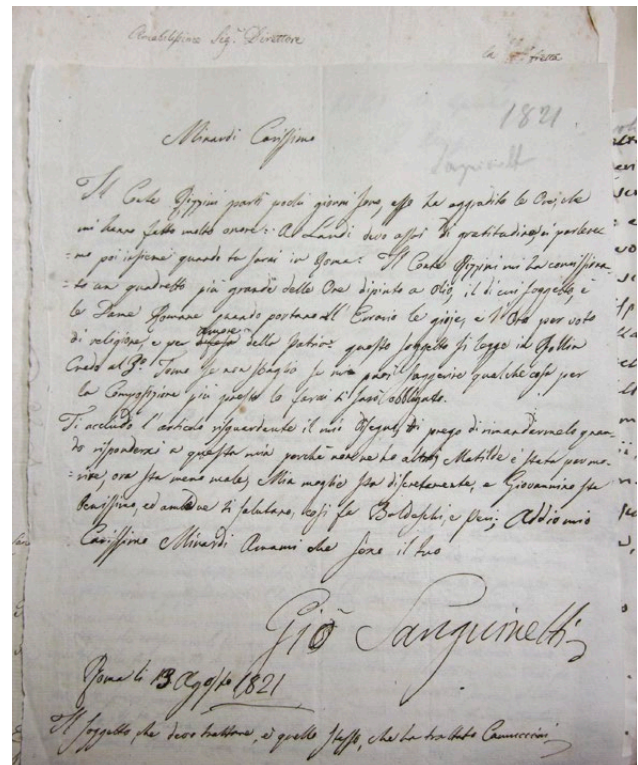 Amabilissimo Sig.r Direttore
la
1821
Minardi Carissimo
Il Conte Pizzini partì pochi giorni sono, esso ha aggradito le Ore, che
mi hanno fatto molto onore: A Landi devo assai di gratitudine, si parlere
=mo poi insieme quando tu sarai in Roma: Il Conte Pizzini mi ha commissiona
=to un quadretto più grande delle Ore dipinto a olio, il di cui soggetto, è
le Dame Romane quando portano all'Errario le gioje, e l'Oro per voto
di religione, e per amore della Patria: questo soggetto si legge in Rollin
Credo al 3.o Tomo se non sbaglio se mi puoi suggerire qualche cosa per
la Composizione più presto lo farai ti sarò obbligato.
Ti accludo l'articolo risguardante il mio Disegno, ti prego di rimandarmelo quan=
do risponderai a questa mia perchè non ne ho altri, Matilde è stata per mo
=rire, ora sta meno male, Mia moglie sta discretamente, e Giovannino sta
Benissimo, ed ambedue ti salutano, così fa Boldeschi, e Peni; Addio mio
Carissimo Minardi Amami che sono il tuo
Gio Sanguinetti
Roma li 13 Agosto 1821
Il soggetto, che devo trattare, è quello stesso, che ha trattato Camuccini